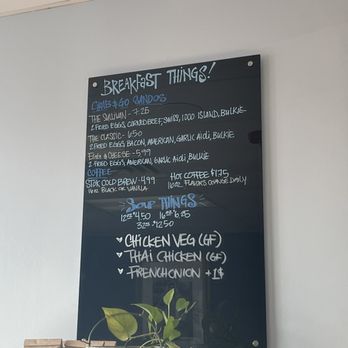 BREAKFAST THINGS!
GRAB & GO SANDOS
THE SULLIVAN - 7.25
2 FRIED EGGS, CORNED BEEF, SWISS, 1000 ISLAND, BULKIE
THE CLASSIC - 6.50
2 FRIED EGGS, BACON, AMERICAN, GARLIC AIOLI, BULKIE
EGG & CHEESE - 5.99
2 FRIED EGGS, AMERICAN, GARLIC AIOLI, BULKIE
COFFEE
STOK COLD BREW - 4.99 HOT COFFEE $1.75
BLACK OR VANILLA 16 OZ. FLAVORS DAILY
SOUP THINGS
12oz $4.50 16oz 6.25
32oz $12.50
♥ CHICKEN VEG (GF)
♥ THAI CHICKEN (GF)
♥ FRENCH ONION +1$